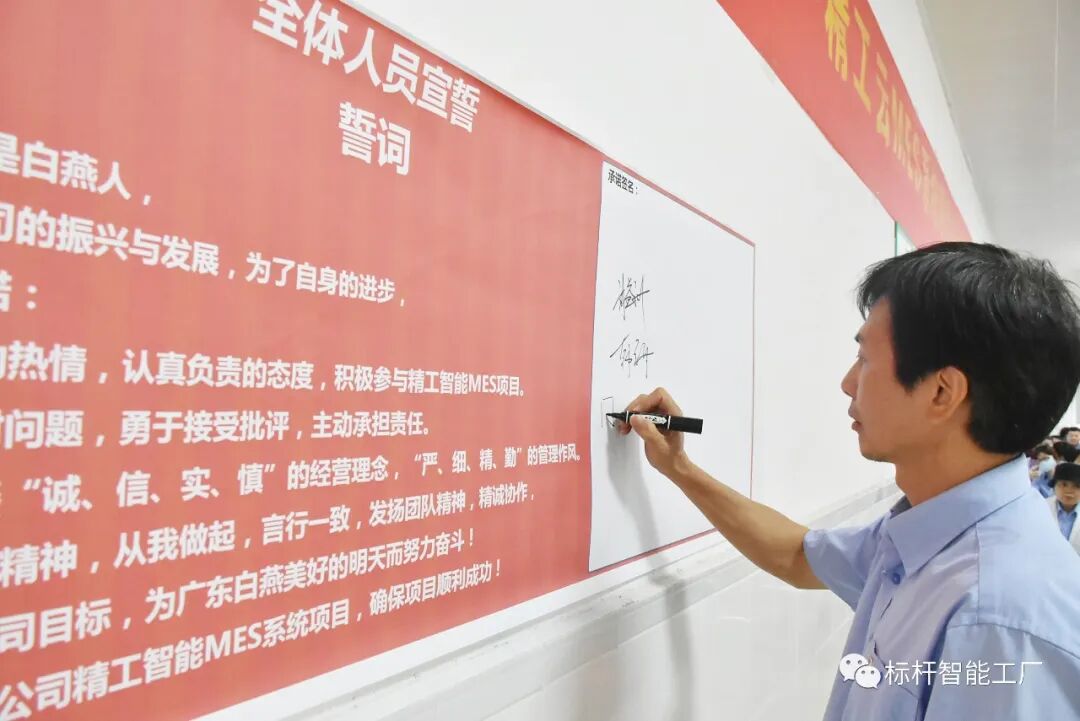 全体人员宣誓
誓词
是白燕人，
司的振兴与发展，为了自身的进步，
诺：
的热情，认真负责的态度，积极参与精工智能MES项目。
问题，勇于接受批评，主动承担责任。
“诚、信、实、慎”的经营理念，“严、细、精、勤”的管理作风。
精神，从我做起，言行一致，发扬团队精神，精诚协作，
司目标，为广东白燕美好的明天而努力奋斗！
公司精工智能MES系统项目，确保项目顺利成功！
承诺签名：
精工云MES
标杆智能工厂